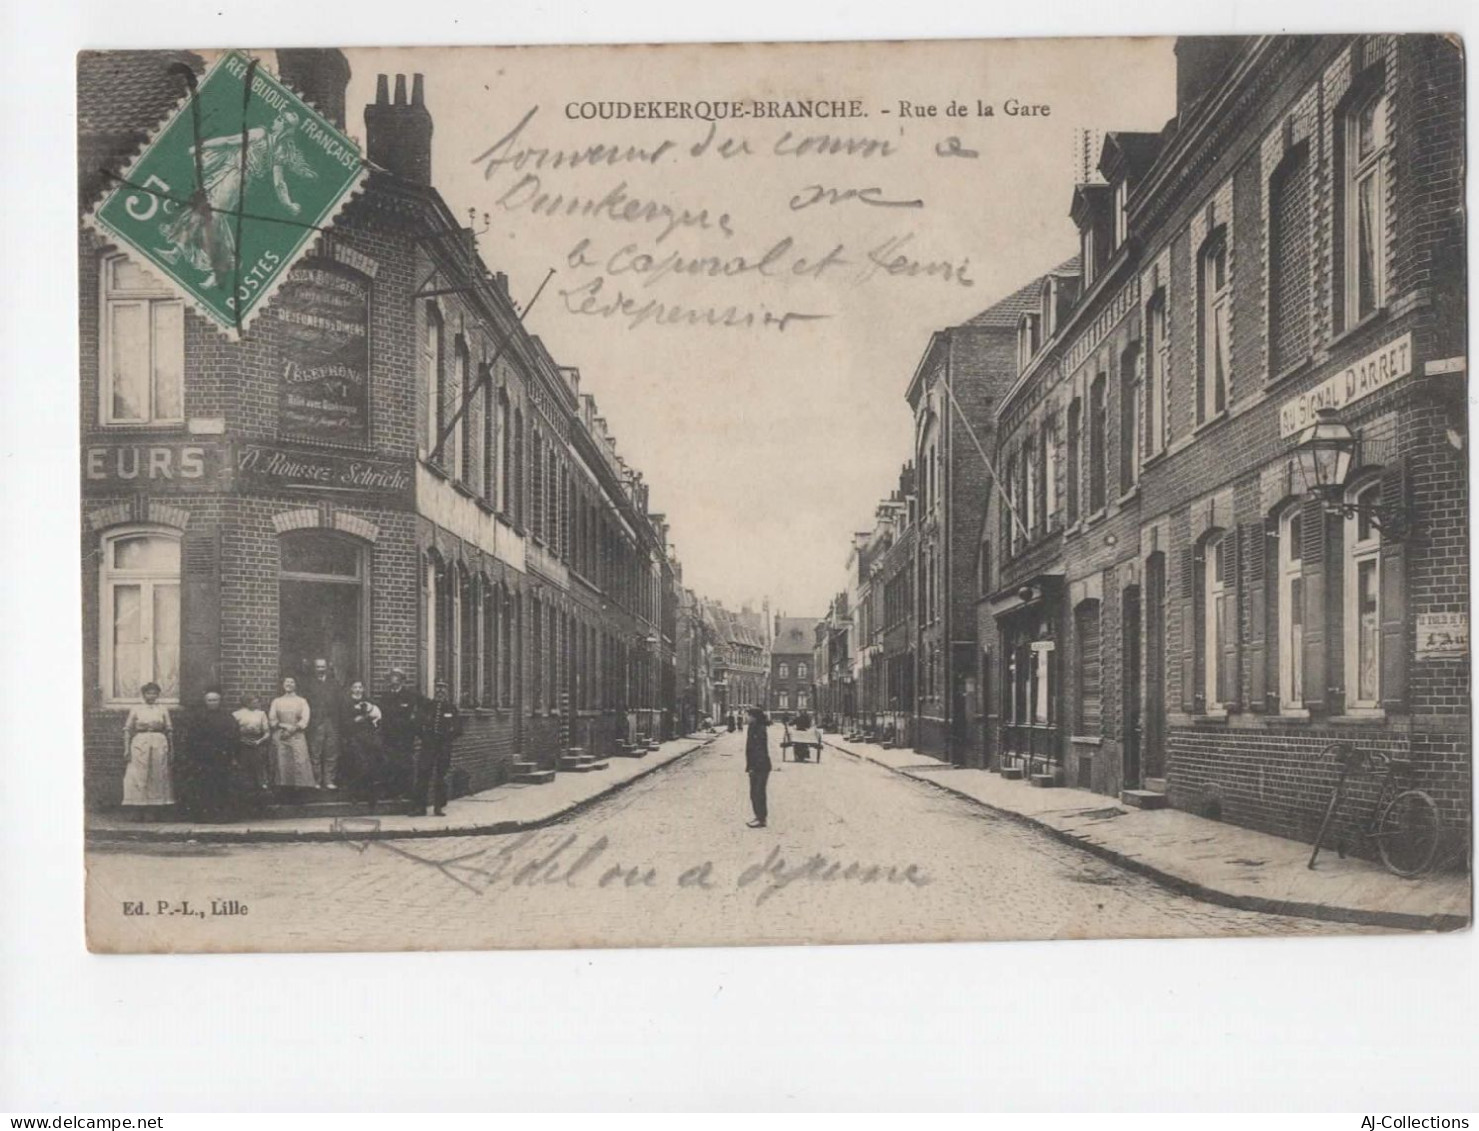 COUDEKERQUE-BRANCHE. - Rue de la Gare
REPUBLIQUE FRANÇAISE
5c
POSTES
Souvenir du convoi a
Dunkerque avec
le caporal et Henri
Ledepensier
TÉLÉPHONE
N° 1
EURS
O. Roussez Schricke
AU SIGNAL D'ARRET
L'Au
Hotel ou a dejeune
Ed. P.-L., Lille
AJ-Collections